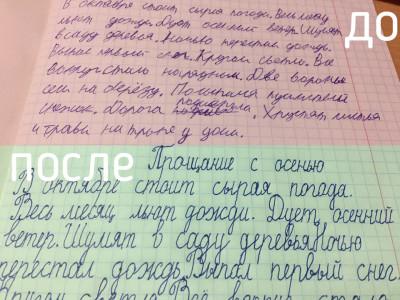 до
в октябре стоит сырая погода. Весь месяц
льют дожди. Дует осенний ветер. Шумят
в саду деревья. Ночью перестал дождь.
Выпал первый снег. Кругом светло. Все
вокруг стало нарядным. Две вороны
сели на берёзу. Посыпался пушистый
снежок. Дорога подмёрзла. Хрустят листья
и трава на тропе у дома.
после
Прощание с осенью
В октябре стоит сырая погода.
Весь месяц льют дожди. Дует осенний
ветер. Шумят в саду деревья. Ночью
перестал дождь. Выпал первый снег.
Кругом светло. Всё вокруг стало